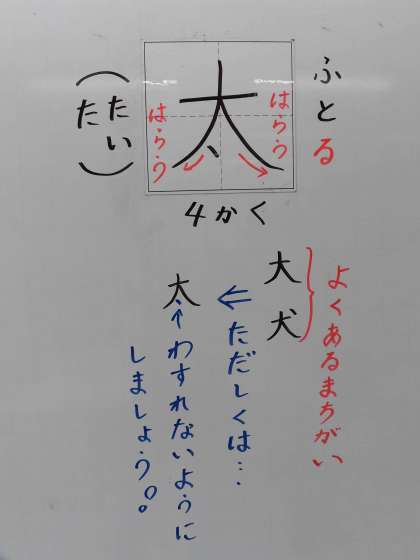 ふとる
太
はらう
はらう
(たい
た)
4かく
よくあるまちがい
大
犬
ただしくは…
太
↑わすれないように
しましょう。